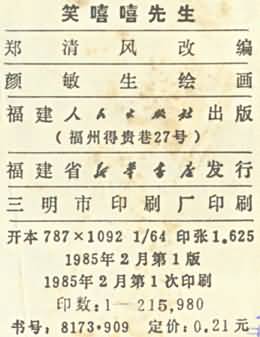 笑嘻嘻先生
郑清风改编
颜敏生绘画
福建人民出版社出版
（福州得贵巷27号）
福建省新华书店发行
三明市印刷厂印刷
开本787×1092 1/64 印张1.625
1985年2月第1版
1985年2月第1次印刷
印数：1—215,980
书号：8173·909 定价：0.21元